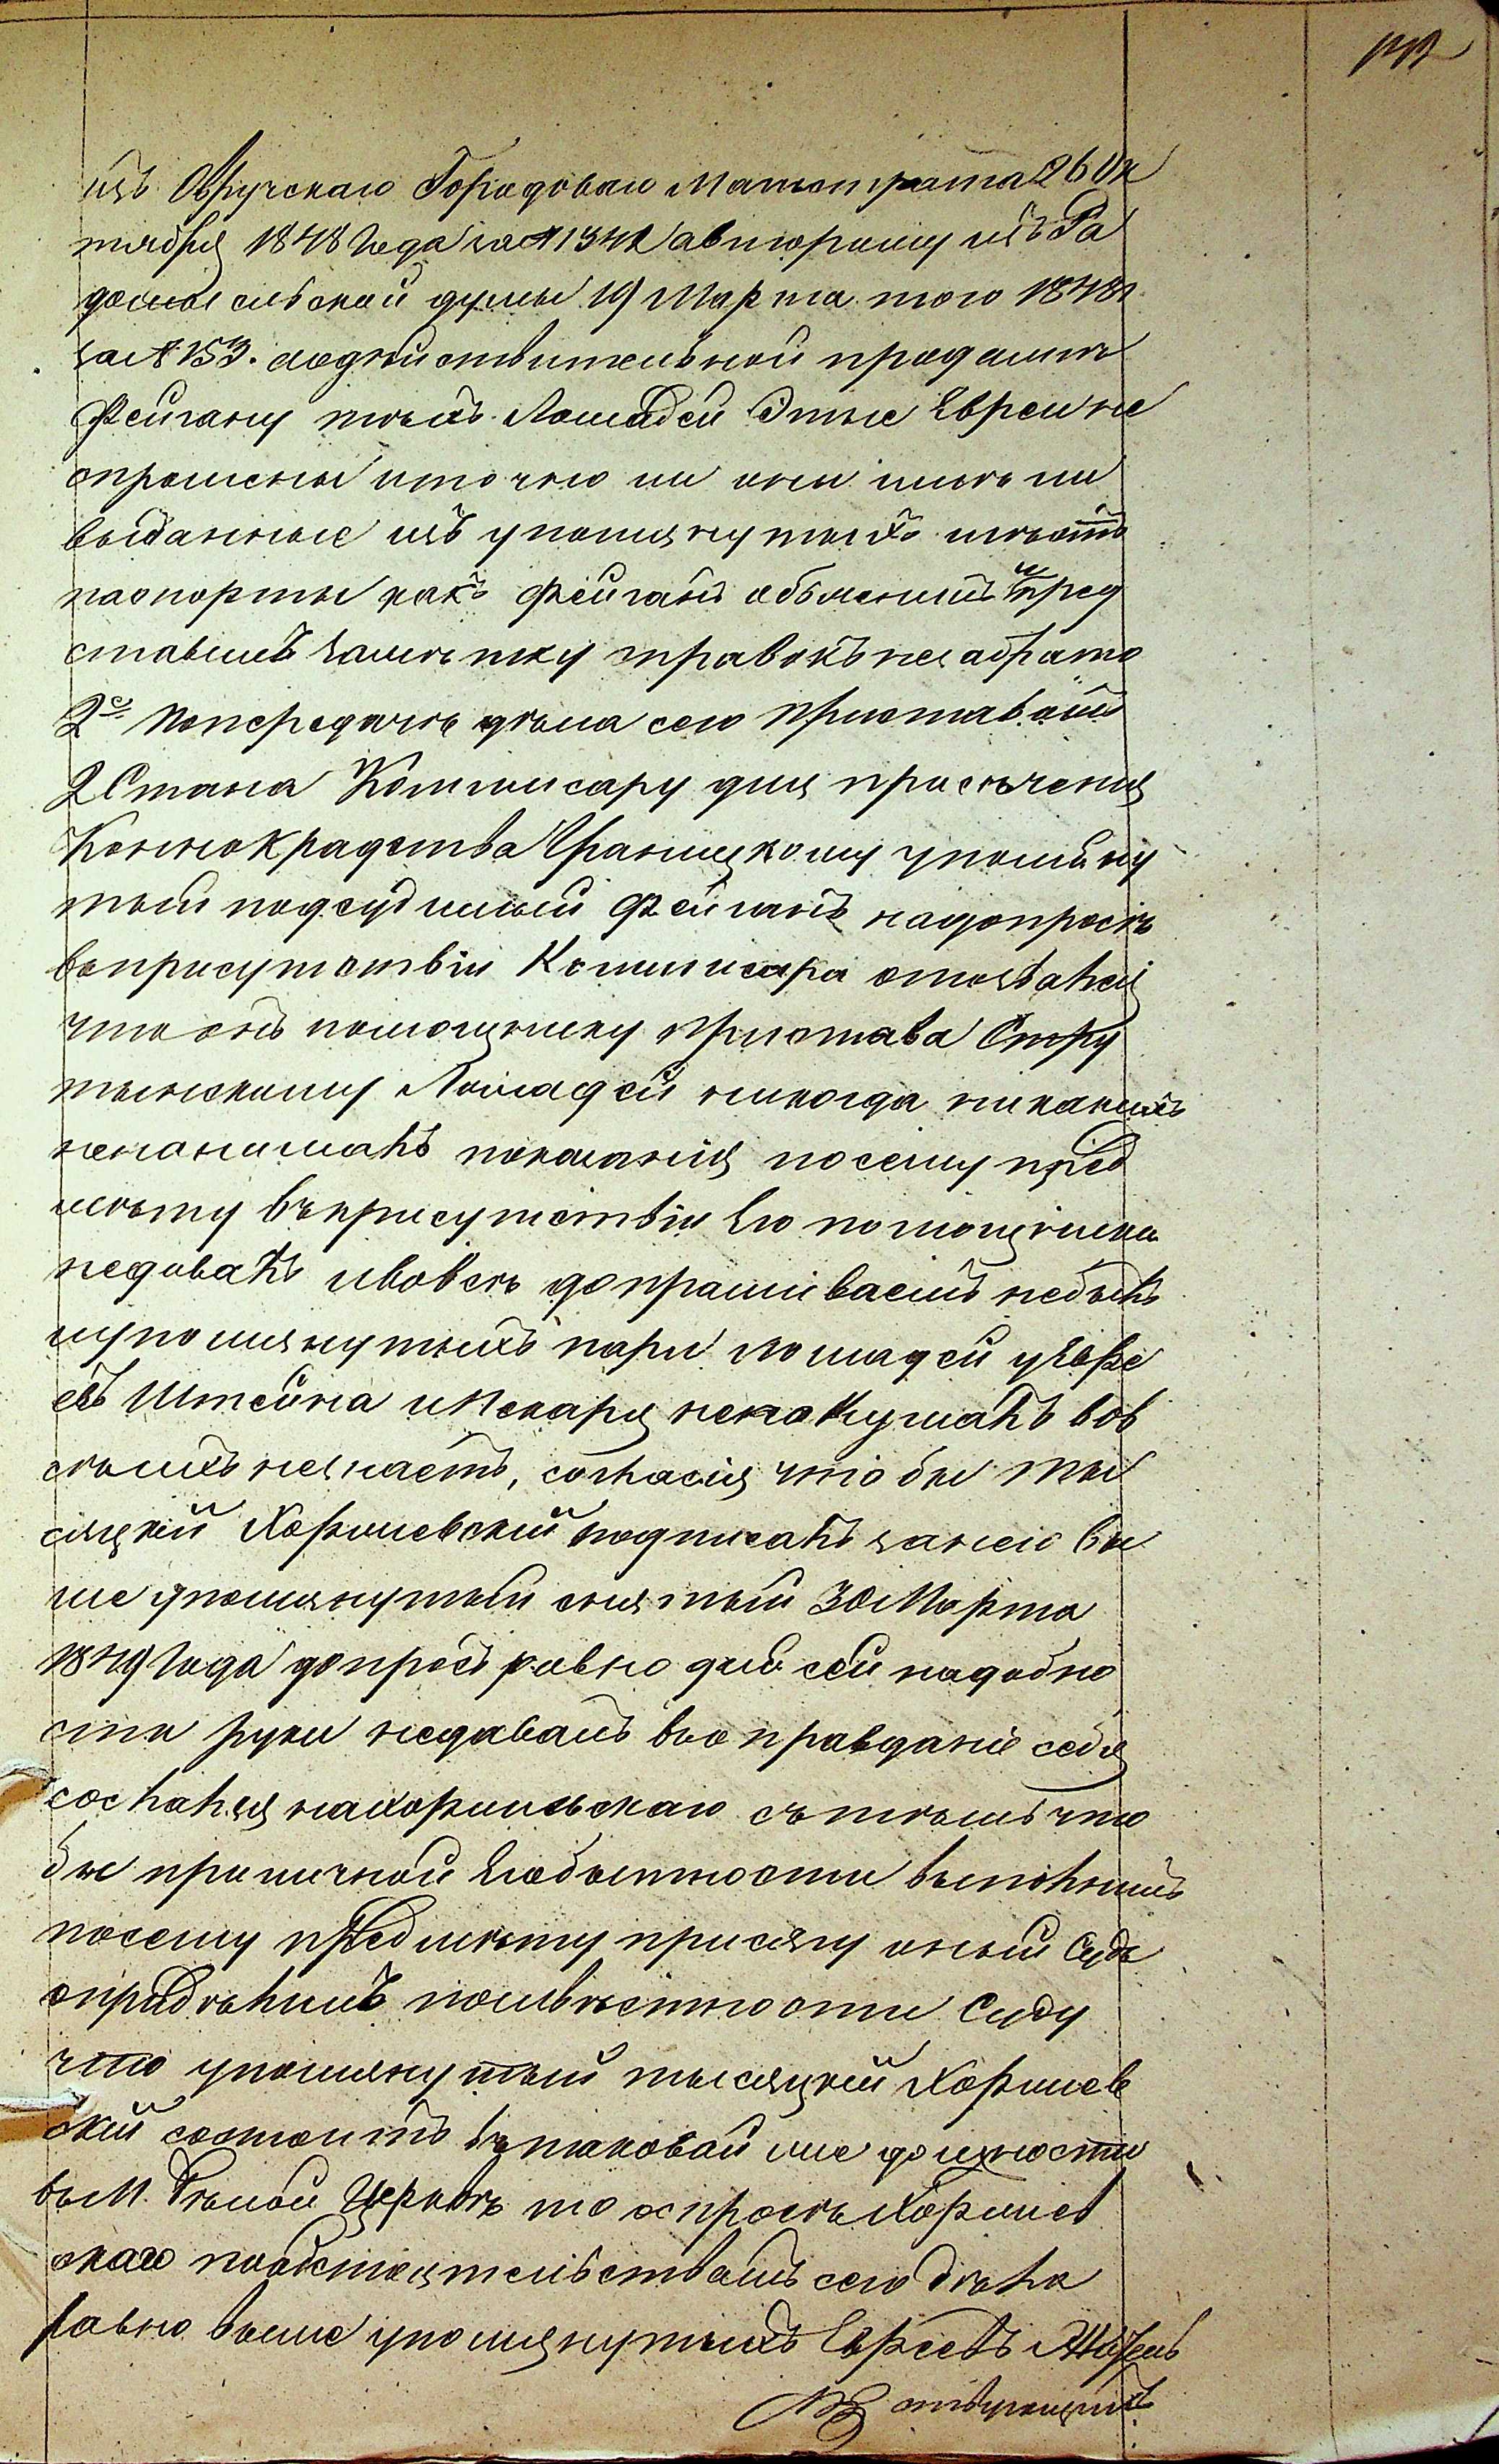 изъ Овручскаго Городоваго Магистрата 26 Ок
тября 1848 года за № 1342 авторому изъ Ра
домысльской думы 19 Марта того 1848 г
за № 153. а одействительной продажѣ
Фейгану тѣхъ Лошадей Этые Евреи не
спрошены и точно ли они имѣли
выданные изъ упомянутыхъ мѣстъ
паспорты какъ Фейганъ объяснилъ и пред
ставилъ замѣтку справокъ не забрато
2е Попередачѣ дѣла сего Приставомъ
2 Стана Коммисару для пресѣчения
Коннокрадства Францкому упомяну
тый подсудимый Фейганъ надопросѣ
въ присутствіи Коммисара отозвался
что онъ помощнику Пристава Стру
тынскому Лошадей никогда никакихъ
не нанималъ показанія посему пред
мѣту въ присутствіи Его помощника
недавалъ ивовсе допрашиваемъ небылъ
и упомянутыхъ пары лошадей у Евре
евъ Штейна и Пекаря не покупалъ вов
се ихъ незнаетъ, согласія чтобы ты
сяцкій Хоршевскій подписалъ занего вы
ше упомянутый снятый 30 Марта
1849 года допросъ равно для сей надобно
сти руки недавалъ въ оправданіе себя
сослался на Хоршевскаго съ тѣмъ что
бы приличной Егобытности выполнилъ
посему предмѣту присягу оный Судъ
опредѣлилъ поизвѣстности Суду
что упомянутый тысяцкій Хоршев
скій состоитъ въ таковой же должности
въ М. Бѣлой Церквѣ то спросѣ Хоршев
скаго пообстоятельствамъ сего дѣла
равно выше упомянутыхъ Евреевъ
отвѣтующихъ